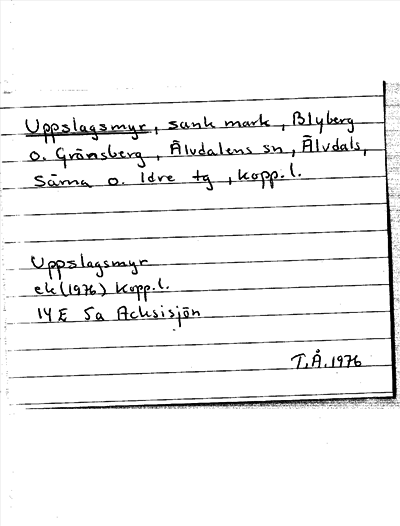 Uppslagsmyr, sank mark, Blyberg
o. Gränsberg, Älvdalens sn, Älvdals,
Särna o. Idre tg, Kopp.l.
Uppslagsmyr
ek (1976) Kopp.l.
14 E 5a Acksisjön
T.Å. 1976